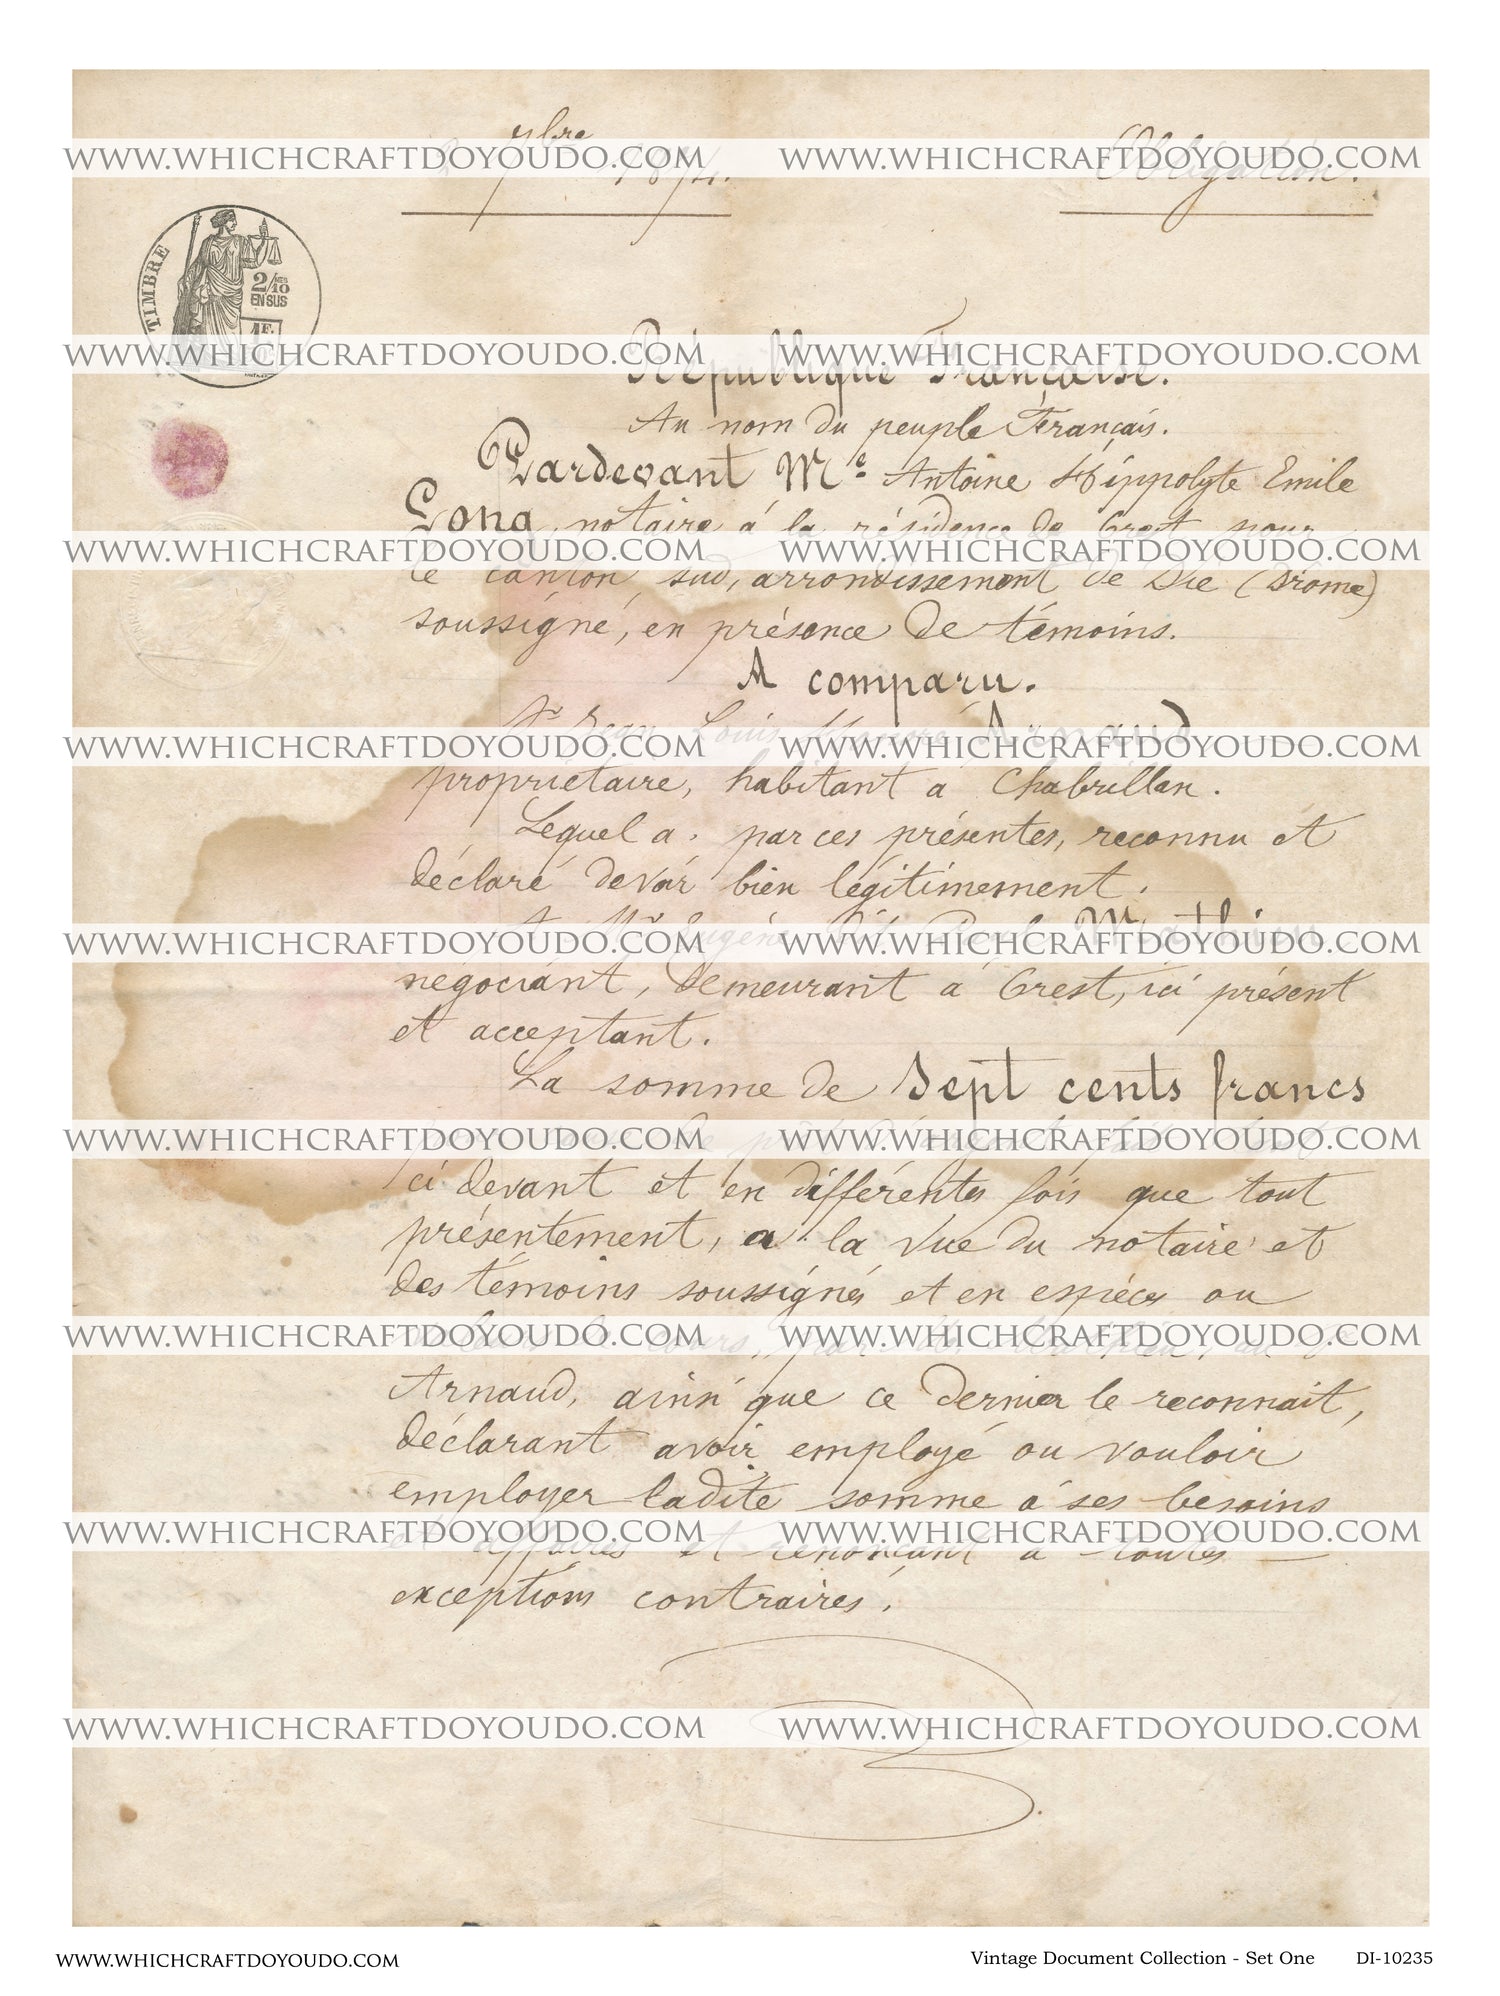 7bre
WWW.WHICHCRAFTDOYOUDO.COM WWW.WHICHCRAFTDOYOUDO.COM
Obligation.
TIMBRE
2/10
EN SUS
1F.
WWW.WHICHCRAFTDOYOUDO.COM WWW.WHICHCRAFTDOYOUDO.COM
République Française.
Au nom du peuple Français.
Pardevant Me Antoine Hippolyte Emile
Long, notaire á la résidence de Crest pour
WWW.WHICHCRAFTDOYOUDO.COM WWW.WHICHCRAFTDOYOUDO.COM
le canton sud, arrondissement de Die (Drome)
soussigné, en présence de témoins.
A comparu.
Sr Jean Louis Honoré Arnaud
WWW.WHICHCRAFTDOYOUDO.COM WWW.WHICHCRAFTDOYOUDO.COM
propriétaire, habitant á Chabrillan.
Lequel a, par ces présentes, reconnu et
déclaré devoir bien légitimement.
A Mr Eugène Paul Mathieu
WWW.WHICHCRAFTDOYOUDO.COM WWW.WHICHCRAFTDOYOUDO.COM
négociant, demeurant á Crest, ici présent
et acceptant.
La somme de Sept cents francs
WWW.WHICHCRAFTDOYOUDO.COM WWW.WHICHCRAFTDOYOUDO.COM
ci devant et en différentes fois que tout
présentement, a la vue du notaire et
des témoins soussignés et en espéces ou
WWW.WHICHCRAFTDOYOUDO.COM WWW.WHICHCRAFTDOYOUDO.COM
Arnaud, ainsi que ce dernier le reconnait,
déclarant avoir employé ou vouloir
employer ladite somme á ses besoins
WWW.WHICHCRAFTDOYOUDO.COM WWW.WHICHCRAFTDOYOUDO.COM
et affaires et renonçant a toutes
exceptions contraires.
WWW.WHICHCRAFTDOYOUDO.COM WWW.WHICHCRAFTDOYOUDO.COM
WWW.WHICHCRAFTDOYOUDO.COM Vintage Document Collection - Set One DI-10235